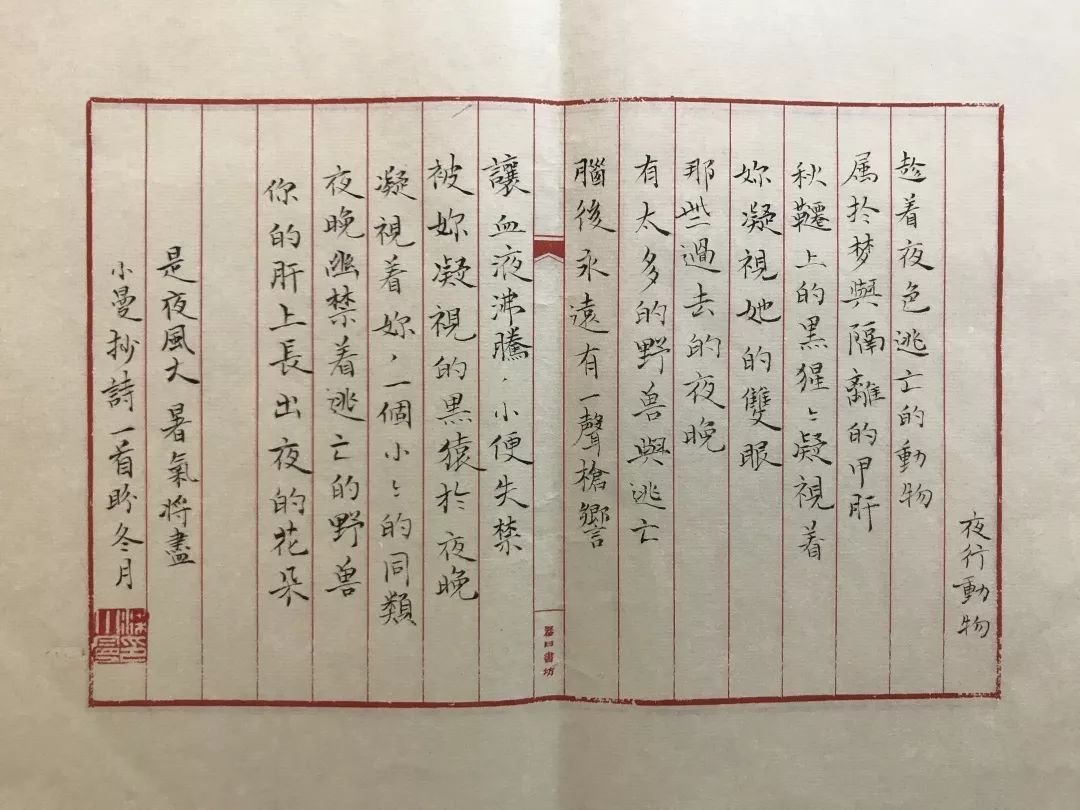 夜行動物
趁着夜色逃亡的動物
属於梦與隔離的甲肝
秋韆上的黑猩〻凝視着
妳凝視她的雙眼
那些過去的夜晚
有太多的野兽與逃亡
腦後永遠有一聲槍響
書坊
讓血液沸騰，小便失禁
被妳凝視的黑猿於夜晚
凝視着妳，一個小〻的同類
夜晚幽禁着逃亡的野兽
你的肝上長出夜的花朵
是夜風大 暑氣將盡
小曼抄詩一首盼冬月